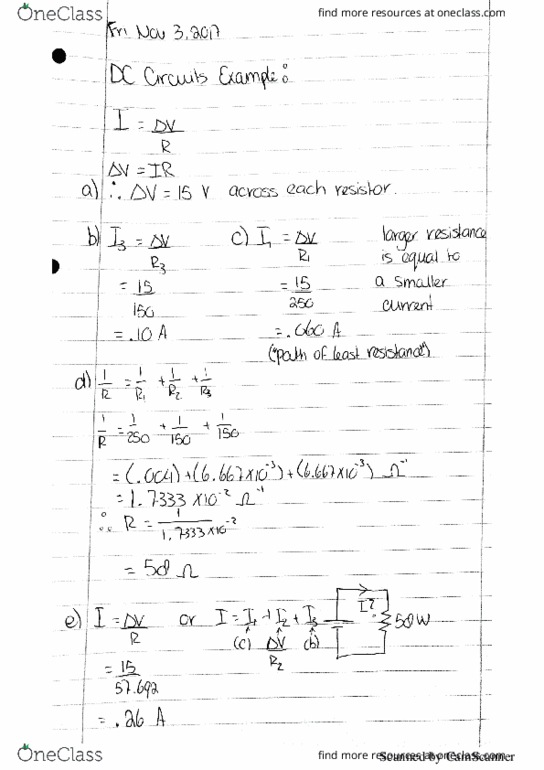 OneClass
find more resources at oneclass.com
Fri Nov 3, 2017
DC Circuits Example:
I = ΔV
R
ΔV = IR
a) ∴ ΔV = 15 V across each resistor.
b) I3 = ΔV
R3
= 15
150
= .10 A
c) I1 = ΔV
R1
= 15
250
= .060 A
("path of least resistance")
larger resistance
is equal to
a smaller
current
d) 1/R = 1/R1 + 1/R2 + 1/R3
1/R = 1/250 + 1/150 + 1/150
= (.004) + (6.667x10^-3) + (6.667x10^-3) Ω^-1
= 1.7333 x10^-2 Ω^-1
∴ R = 1
1.7333x10^-2
= 58 Ω
e) I = ΔV or I = I1 + I2 + I3
R (c) ΔV (b)
R2
I?
58W
= 15
57.692
= .26 A
OneClass
find more resources at oneclass.com
Scanned by CamScanner